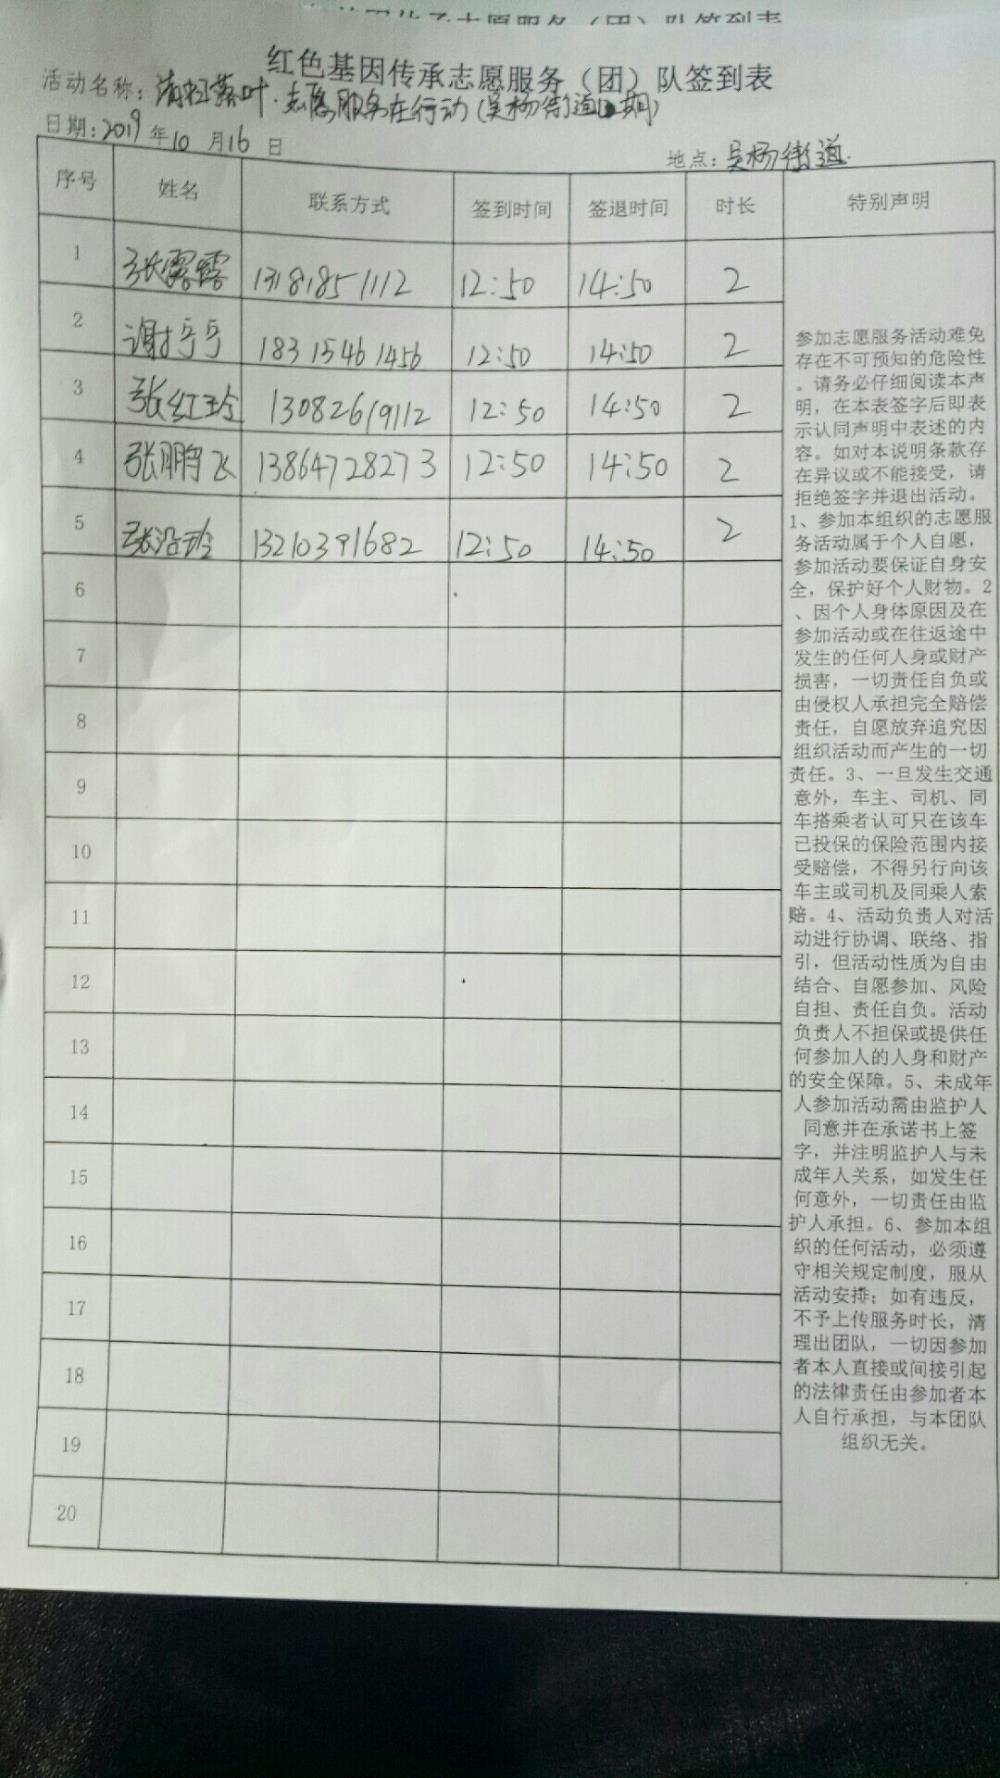 红色基因传承志愿服务（团）队签到表
活动名称：清扫落叶·志愿服务在行动(吴杨街道 期)
日期:2019年10月16日
地点:吴杨街道
序号 姓名 联系方式 签到时间 签退时间 时长 特别声明
1 张露露 13181851112 12:50 14:50 2
2 谢宁宁 18315461456 12:50 14:50 2
3 张红玲 13082619112 12:50 14:50 2
4 张鹏飞 13864728273 12:50 14:50 2
5 张沿玲 13210391682 12:50 14:50 2
6
7
8
9
10
11
12
13
14
15
16
17
18
19
20
参加志愿服务活动难免
存在不可预知的危险性
。请务必仔细阅读本声
明，在本表签字后即表
示认同声明中表述的内
容。如对本说明条款存
在异议或不能接受，请
拒绝签字并退出活动。
1、参加本组织的志愿服
务活动属于个人自愿，
参加活动要保证自身安
全，保护好个人财物。2
、因个人身体原因及在
参加活动或在往返途中
发生的任何人身或财产
损害，一切责任自负或
由侵权人承担完全赔偿
责任，自愿放弃追究因
组织活动而产生的一切
责任。3、一旦发生交通
意外，车主、司机、同
车搭乘者认可只在该车
已投保的保险范围内接
受赔偿，不得另行向该
车主或司机及同乘人索
赔。4、活动负责人对活
动进行协调、联络、指
引，但活动性质为自由
结合、自愿参加、风险
自担、责任自负。活动
负责人不担保或提供任
何参加人的人身和财产
的安全保障。5、未成年
人参加活动需由监护人
同意并在承诺书上签
字，并注明监护人与未
成年人关系，如发生任
何意外，一切责任由监
护人承担。6、参加本组
织的任何活动，必须遵
守相关规定制度，服从
活动安排；如有违反，
不予上传服务时长，清
理出团队，一切因参加
者本人直接或间接引起
的法律责任由参加者本
人自行承担，与本团队
组织无关。